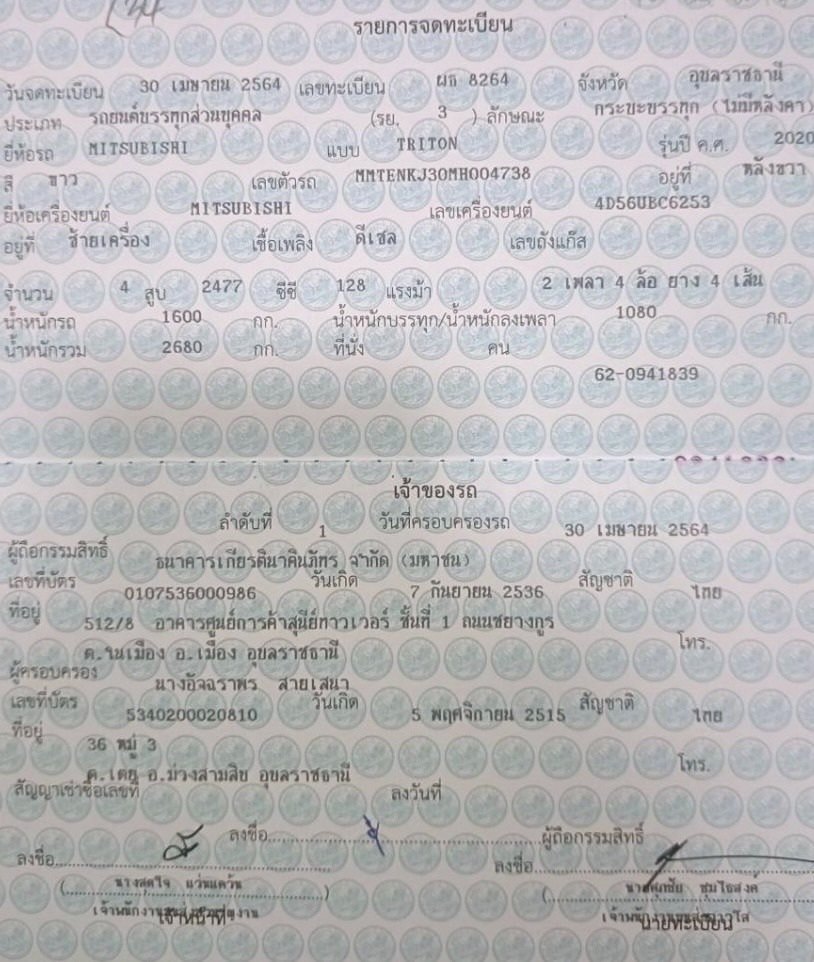 รายการจดทะเบียน
วันจดทะเบียน 30 เมษายน 2564 เลขทะเบียน ผธ 8264 จังหวัด อุบลราชธานี
ประเภท รถยนต์บรรทุกส่วนบุคคล (รย. 3 ) ลักษณะ กระบะบรรทุก (ไม่มีหลังคา)
ยี่ห้อรถ MITSUBISHI แบบ TRITON รุ่นปี ค.ศ. 2020
สี ขาว เลขตัวรถ MMTENKJ30MH004738 อยู่ที่ หลังขวา
ยี่ห้อเครื่องยนต์ MITSUBISHI เลขเครื่องยนต์ 4D56UBC6253
อยู่ที่ ซ้ายเครื่อง เชื้อเพลิง ดีเซล เลขถังแก๊ส
จำนวน 4 สูบ 2477 ซีซี 128 แรงม้า 2 เพลา 4 ล้อ ยาง 4 เส้น
น้ำหนักรถ 1600 กก. น้ำหนักบรรทุก/น้ำหนักลงเพลา 1080 กก.
น้ำหนักรวม 2680 กก. ที่นั่ง คน
62-0941839
เจ้าของรถ
ลำดับที่ 1 วันที่ครอบครองรถ 30 เมษายน 2564
ผู้ถือกรรมสิทธิ์ ธนาคารเกียรตินาคินภัทร จำกัด (มหาชน)
เลขที่บัตร 0107536000986 วันเกิด 7 กันยายน 2536 สัญชาติ ไทย
ที่อยู่ 512/8 อาคารศูนย์การค้าสุนีย์ทาวเวอร์ ชั้นที่ 1 ถนนชยางกูร
ต.ในเมือง อ.เมือง อุบลราชธานี โทร.
ผู้ครอบครอง นางอัจฉราพร สายเสนา
เลขที่บัตร 5340200020810 วันเกิด 5 พฤศจิกายน 2515 สัญชาติ ไทย
ที่อยู่ 36 หมู่ 3
ต.เตย อ.ม่วงสามสิบ อุบลราชธานี โทร.
สัญญาเช่าซื้อเลขที่ ลงวันที่
ลงชื่อ ผู้ถือกรรมสิทธิ์
ลงชื่อ ลงชื่อ
(นางสดใจ แว่นแคว้น)
เจ้าหน้าที่ นายทะเบียน